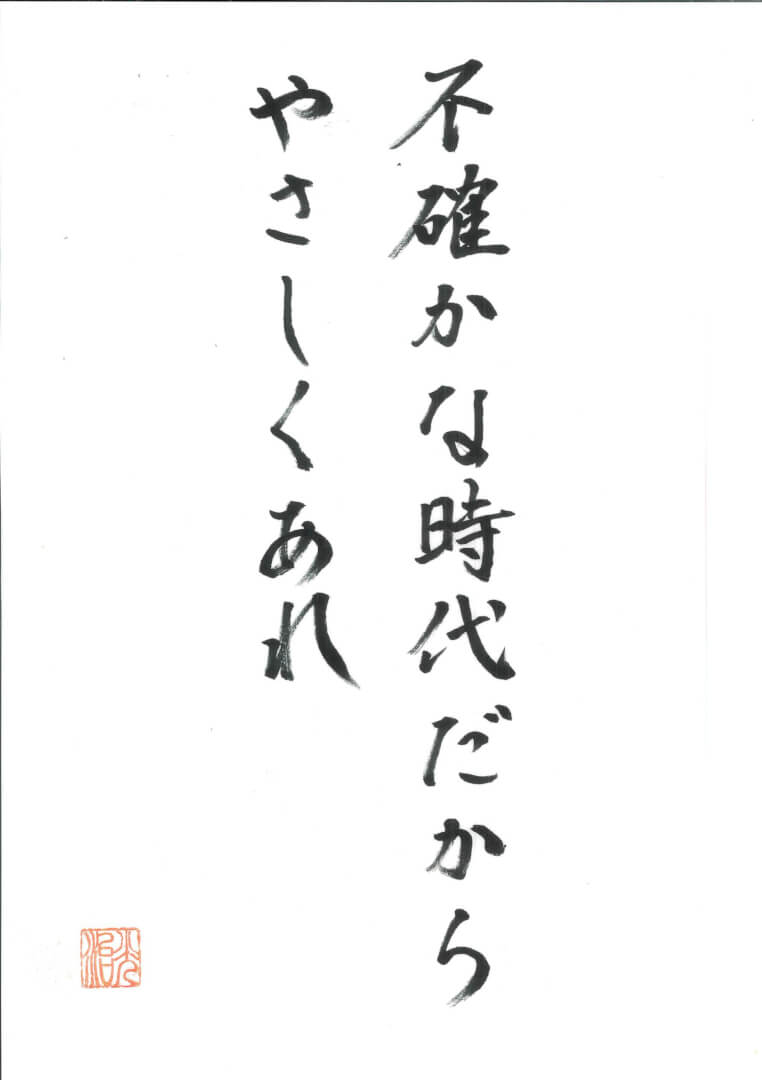 不確かな時代だから
やさしくあれ